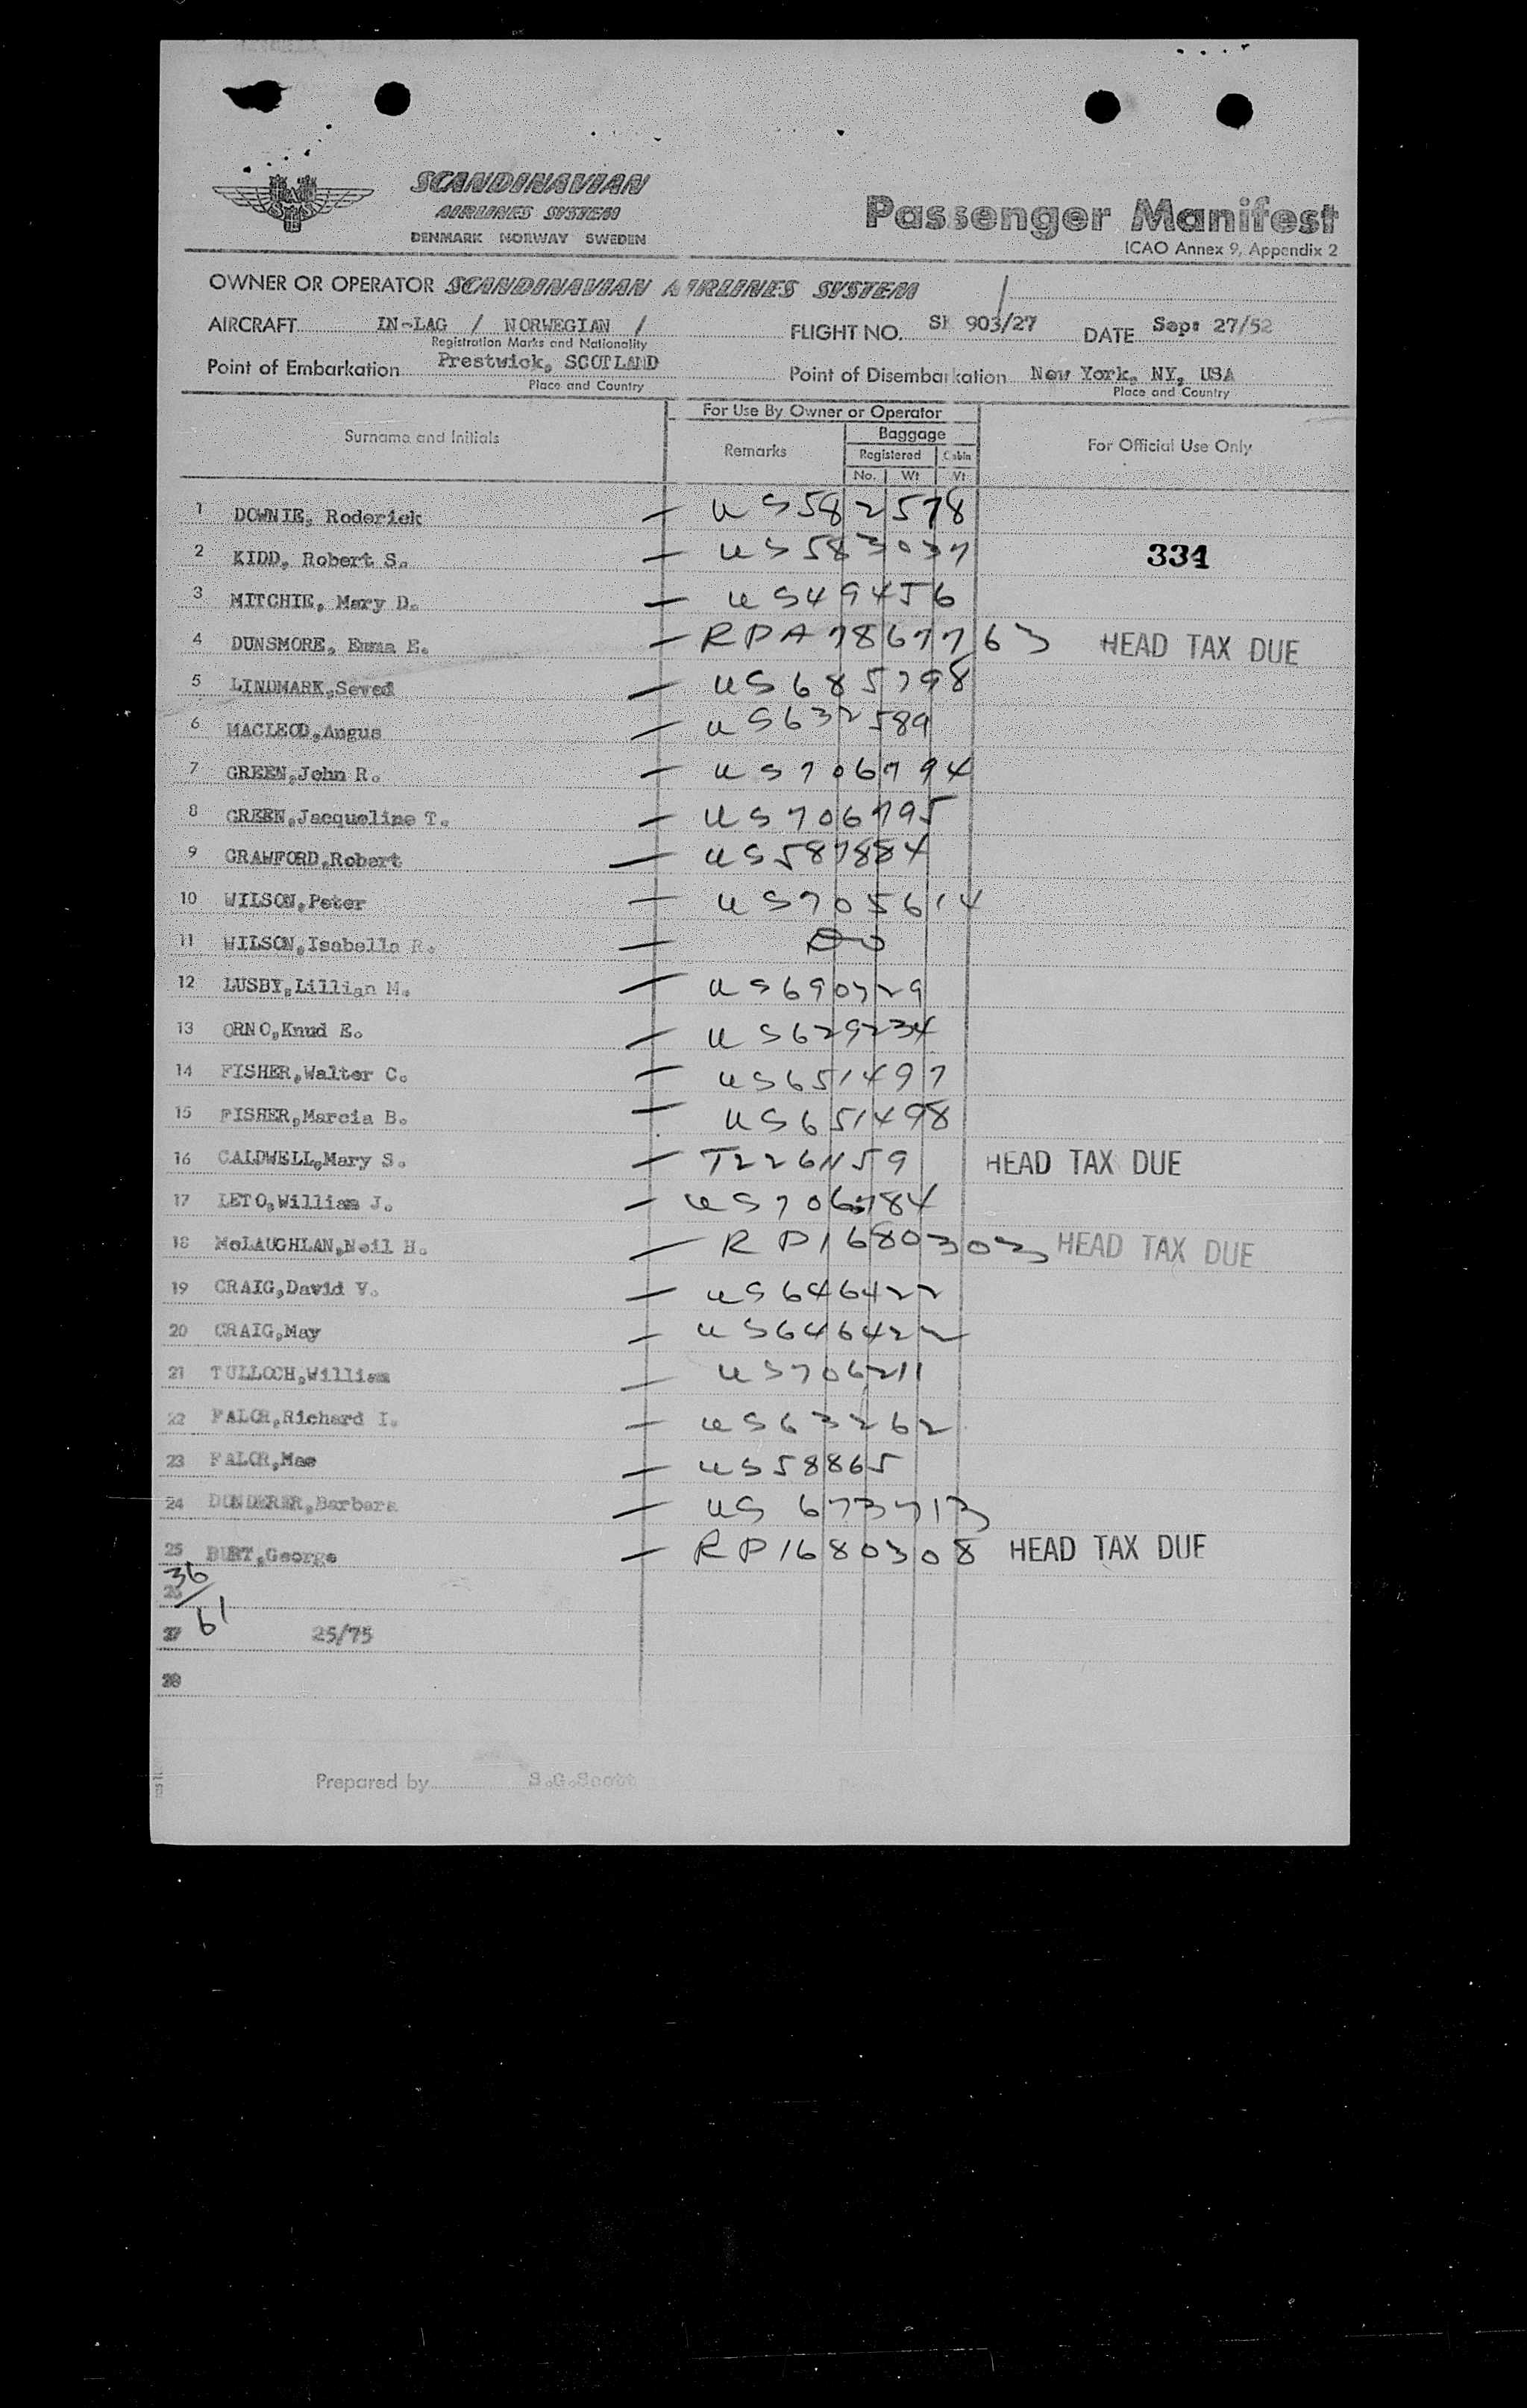 SCANDINAVIAN
AIRLINES SYSTEM
DENMARK NORWAY SWEDEN
Passenger Manifest
ICAO Annex 9, Appendix 2
OWNER OR OPERATOR SCANDINAVIAN AIRLINES SYSTEM
AIRCRAFT IN-LAG / NORWEGIAN / FLIGHT NO. SK 903/27 DATE Sept 27/52
Registration Marks and Nationality
Point of Embarkation Prestwick, SCOTLAND Point of Disembarkation New York, NY, USA
Place and Country Place and Country
For Use By Owner or Operator
Surname and Initials Remarks Baggage For Official Use Only
Registered Cabin
No. Wt Wt
1 DOWNIE, Roderick — US582578
2 KIDD, Robert S. — US583037 334
3 MITCHIE, Mary D. — US49456
4 DUNSMORE, Emma E. — RPA7867763 HEAD TAX DUE
5 LINDMARK,Seved — US685798
6 MACLEOD,Angus — US632589
7 GREEN,John R. — US706794
8 GREEN,Jacqueline T. — US706795
9 CRAWFORD,Robert — US587884
10 WILSON,Peter — US705614
11 WILSON,Isabella R. — Do
12 LUSBY,Lillian M. — US690729
13 ORNO,Knud E. — US629234
14 FISHER,Walter C. — US651497
15 FISHER,Marcia B. — US651498
16 CALDWELL,Mary S. — T2261159 HEAD TAX DUE
17 LETO,William J. — US706784
18 McLAUGHLAN,Neil H. — RP1680303 HEAD TAX DUE
19 CRAIG,David V. — US646422
20 CRAIG,May — US646422
21 TULLOCH,William — US706211
22 FALCR,Richard I. — US63262
23 FALCR,Mae — US58865
24 DUNDERER,Barbara — US 673713
25 BURT,George — RP1680308 HEAD TAX DUE
36
26
61
27 25/75
28
Prepared by S.G.Scott